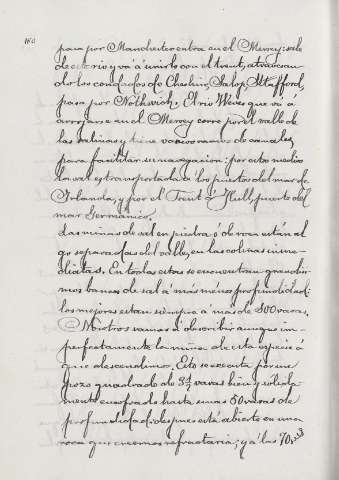 160
pasa por Manchester entra en el Mersey: sale
de este rio y vá á unirlo con el trent, atravesan
do los condados de Chesline, Salop, Stafford,
pasa por Nothwich. El rio Wever que va a
arrojarse en el Mersey corre por el valle de
las salinas y tiene varios ramos de canales
para facilitar su navegacion: por este medio
la sal es transportada á los puertos del mar de
Irlanda, y por el Trent á Hull, puerto del
mar Germánico.
Las minas de sal en piedra ó de roca están al
go separadas del valle, en las colinas inme
diatas. En todas estas se encuentran grandisi
mos bancos de sal á más ménos profundidad:
los mejores estan siempre a mas de 300 varas.
Nosotros vamos á describir aunque im-
perfectamente la mina de esta especie á
que descendimos. Esto se executa por un
pozo quadrado de 3½ varas bien y solida
mente encofrado hasta unas 50 varas de
profundidad: despues está abierto en una
roca que creemos refractaria; y á las 70